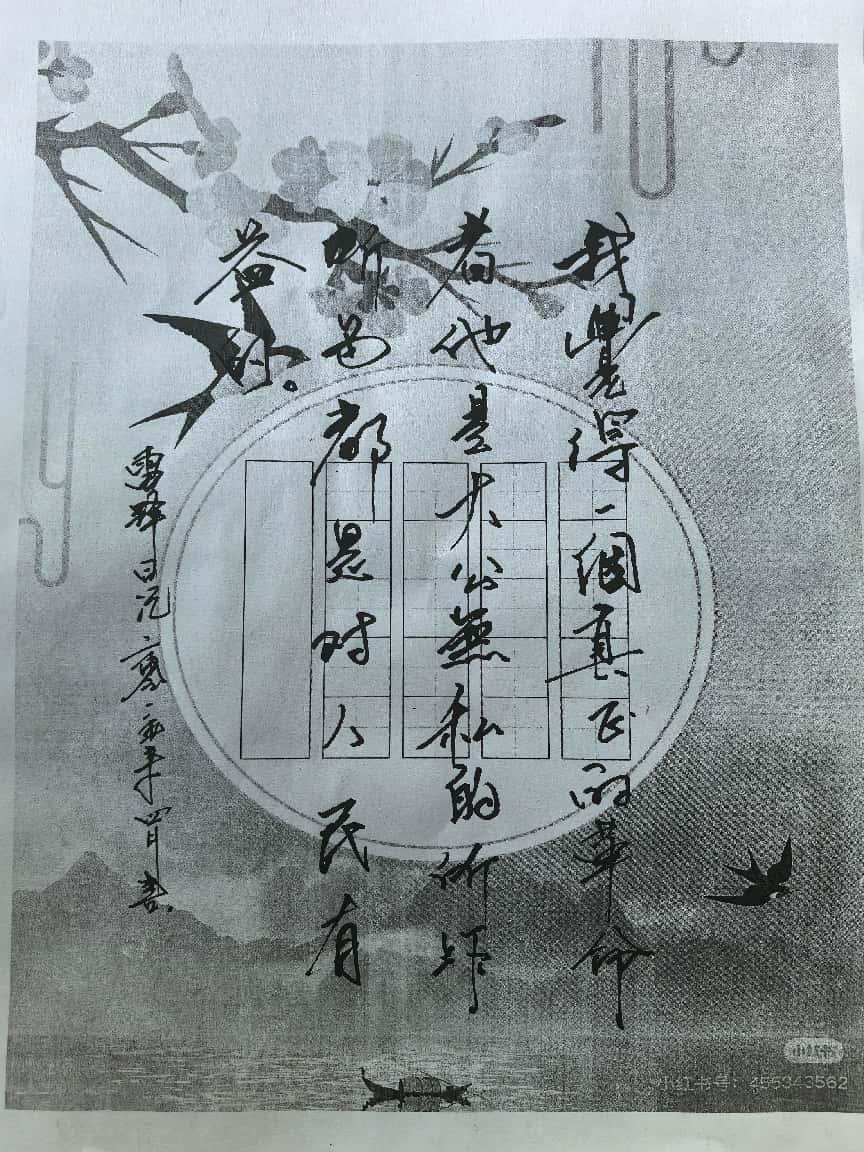 我覺得一個真正的革命
者他是大公無私的所作
所为都是对人民有
益的。
雷鋒日记 二零二五年四月書
小红书
小红书号：